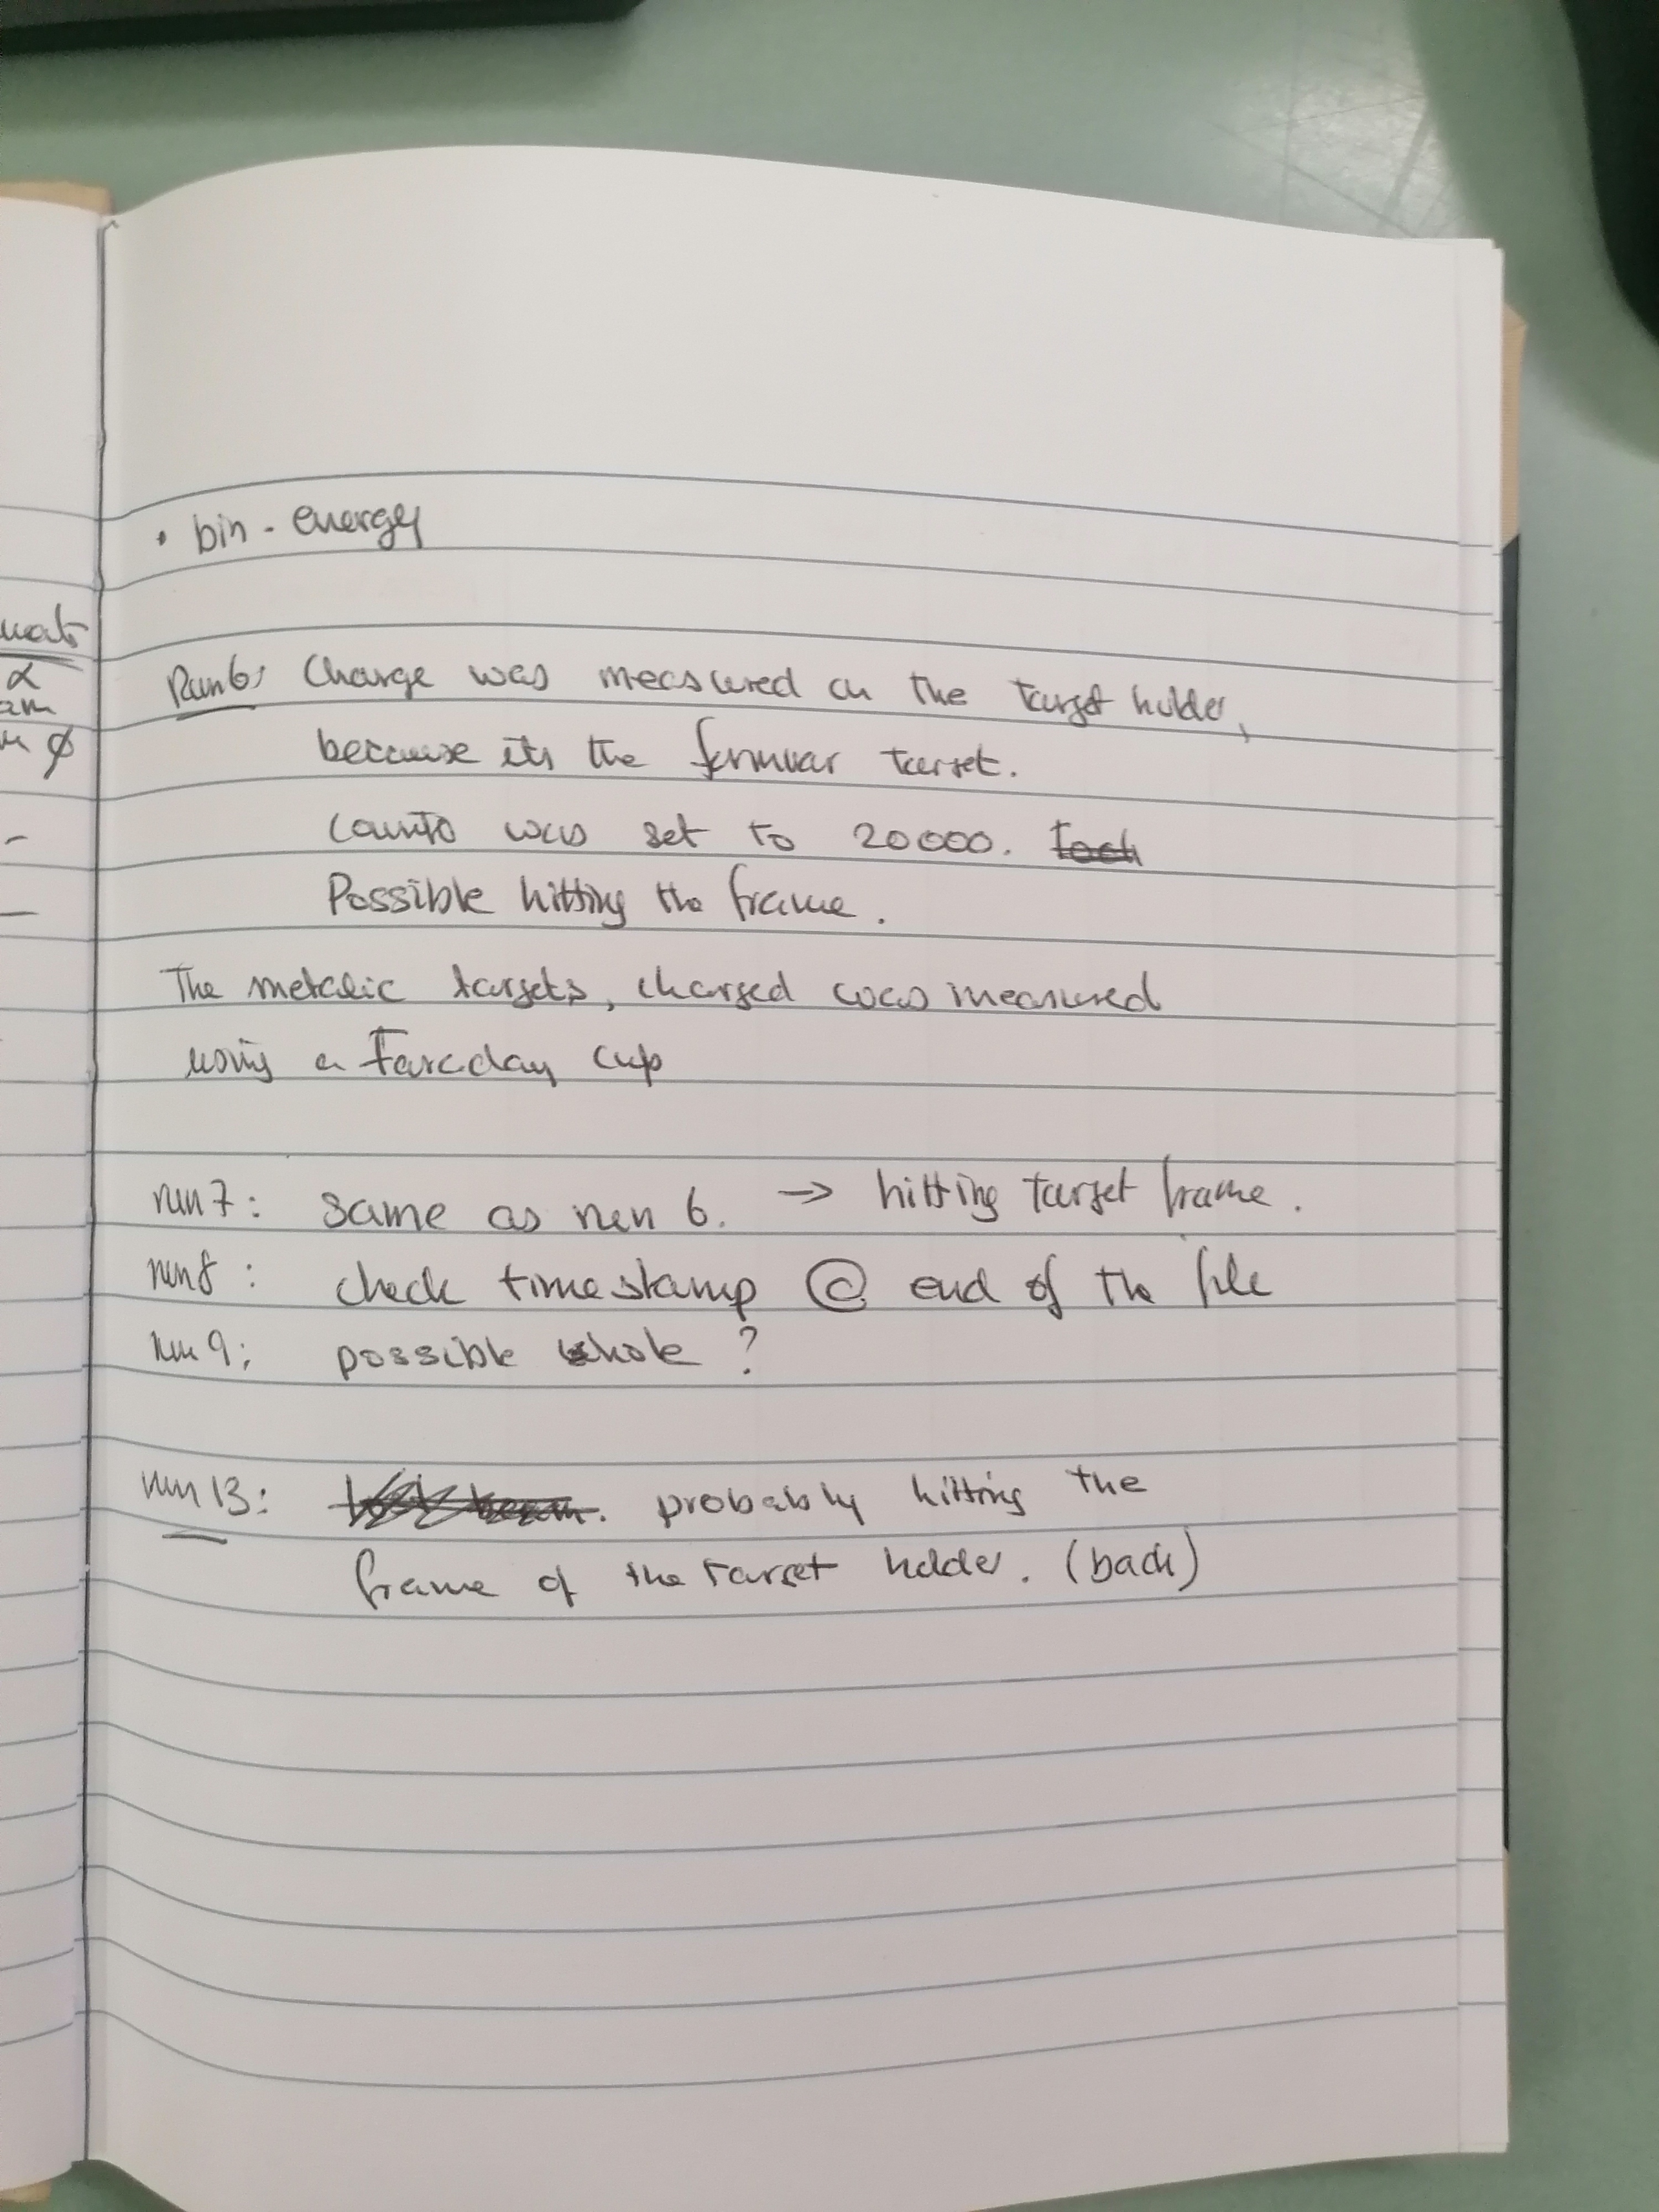 • bin - energy
α
φ
Run6: Charge was measured on the target holder,
because its the formvar target.
Counts was set to 20000.
Possible hitting the frame.
The metalic targets, charged was measured
using a Faraday cup
run 7: same as run 6. → hitting target frame.
run 8: check timestamp @ end of the file
run 9: possible whole ?
run 13: probably hitting the
frame of the target holder. (back)